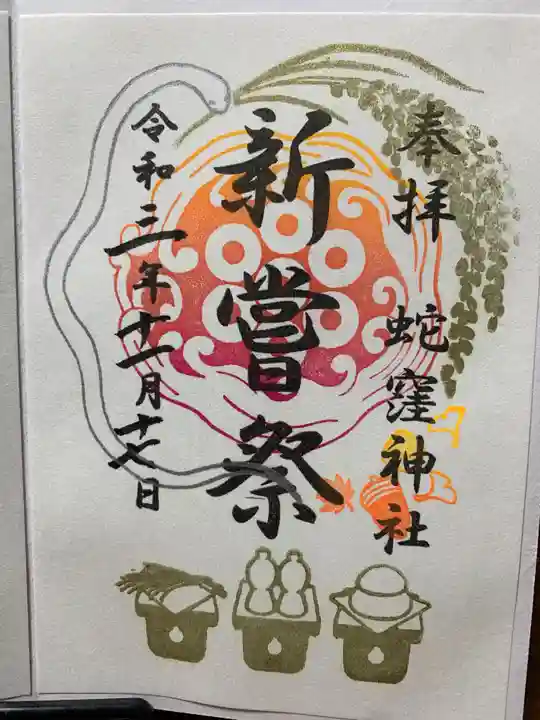 奉拝 蛇窪神社
新嘗祭
令和三年十一月十七日